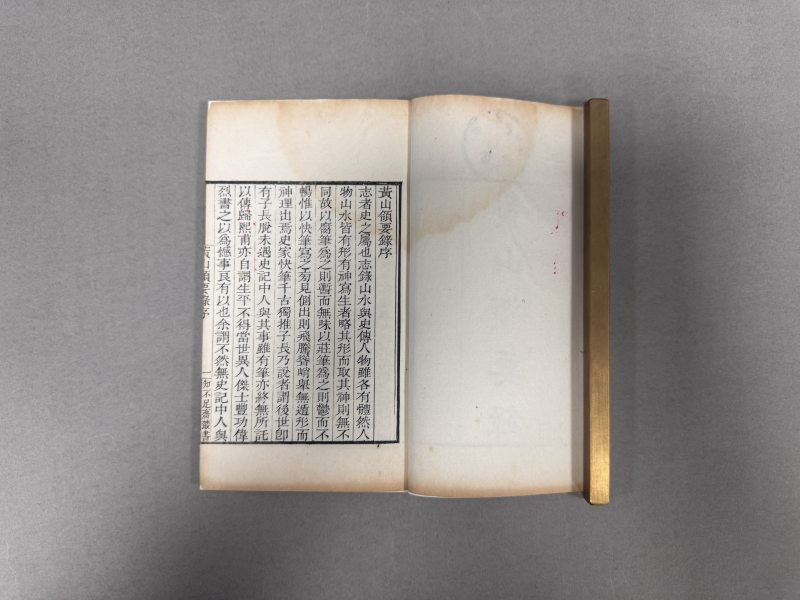 黃山領要錄序
志者史之屬也志錄山水與史傳人物雖各有體然人
物山水皆有形有神寫生者略其形而取其神則無不
同故以腐筆為之則蹔而無味以莊筆為之則鬱而不
暢惟以快筆寫之芴見側出則飛騰聳峭舉無遁形而
神理出焉史家快筆千古獨推子長乃說者謂後世卽
有子長脫未遇史記中人與其事雖有筆亦終無所託
以傳歸熙甫亦自謂生平不得當世異人傑士豐功偉
烈書之以為憾事良有以也余謂不然無史記中人與
黃山領要錄序
一
知不足齋叢書